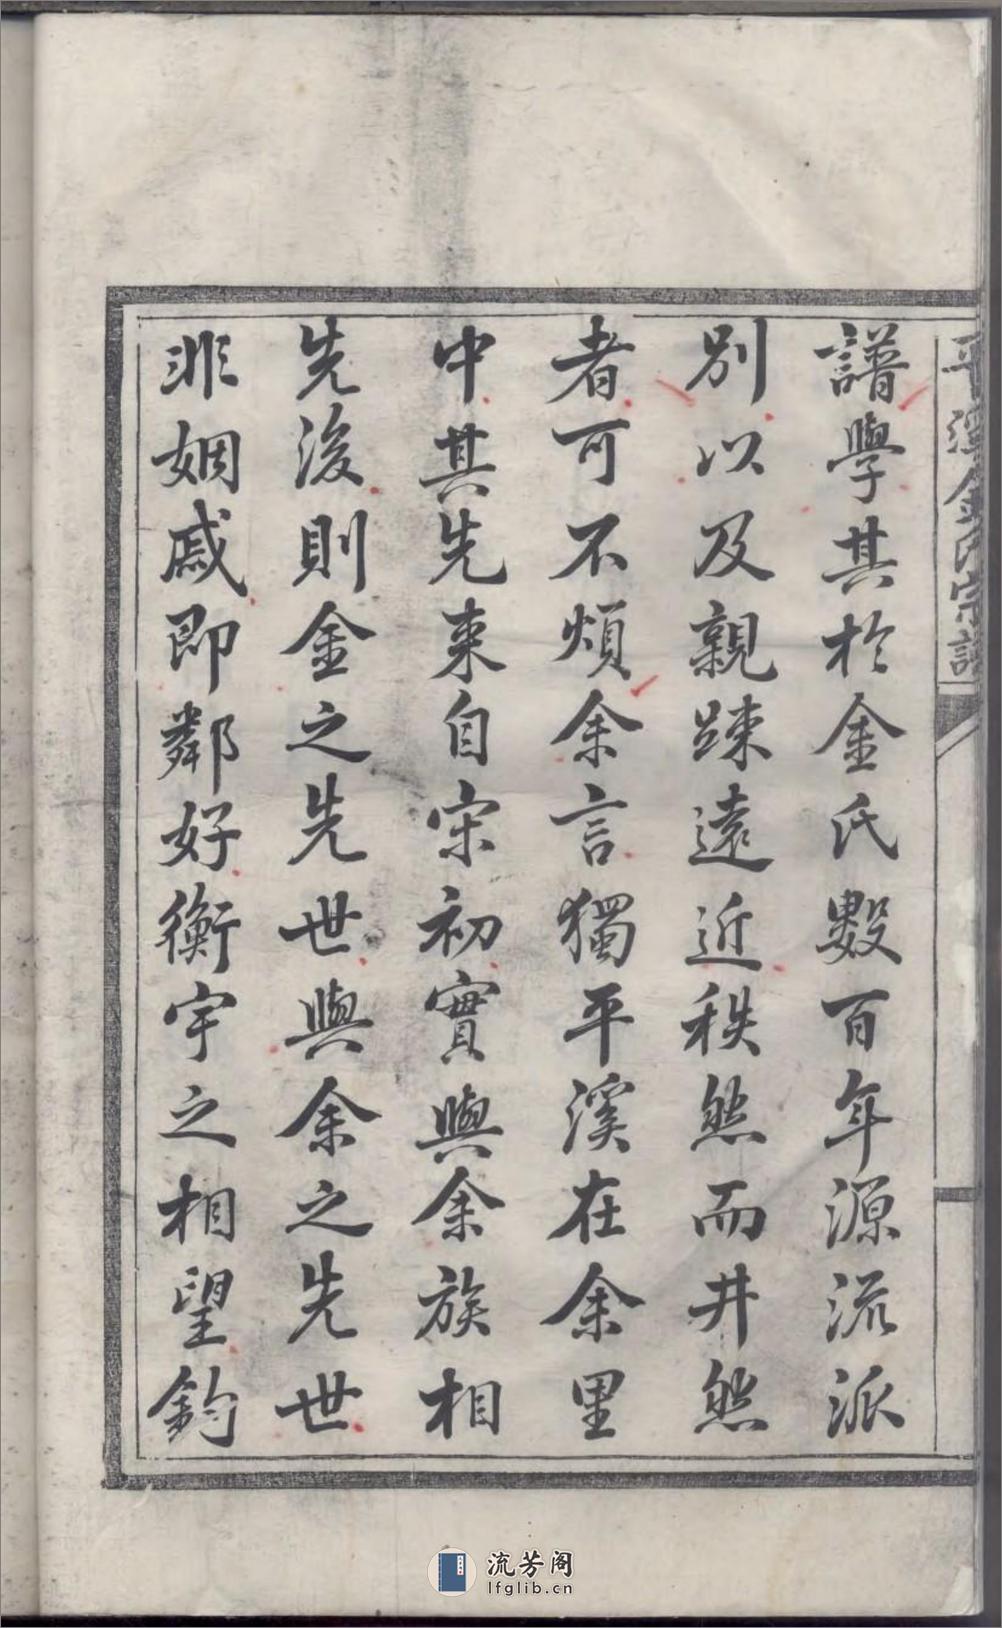 平溪金氏宗譜
譜學其於金氏數百年源流派
別以及親踈遠近秩然而井然
者可不煩余言獨平溪在余里
中其先来自宋初實與余族相
先後則金之先世與余之先世
非姻戚即鄰好衡宇之相望釣
流芳阁
lfglib.cn